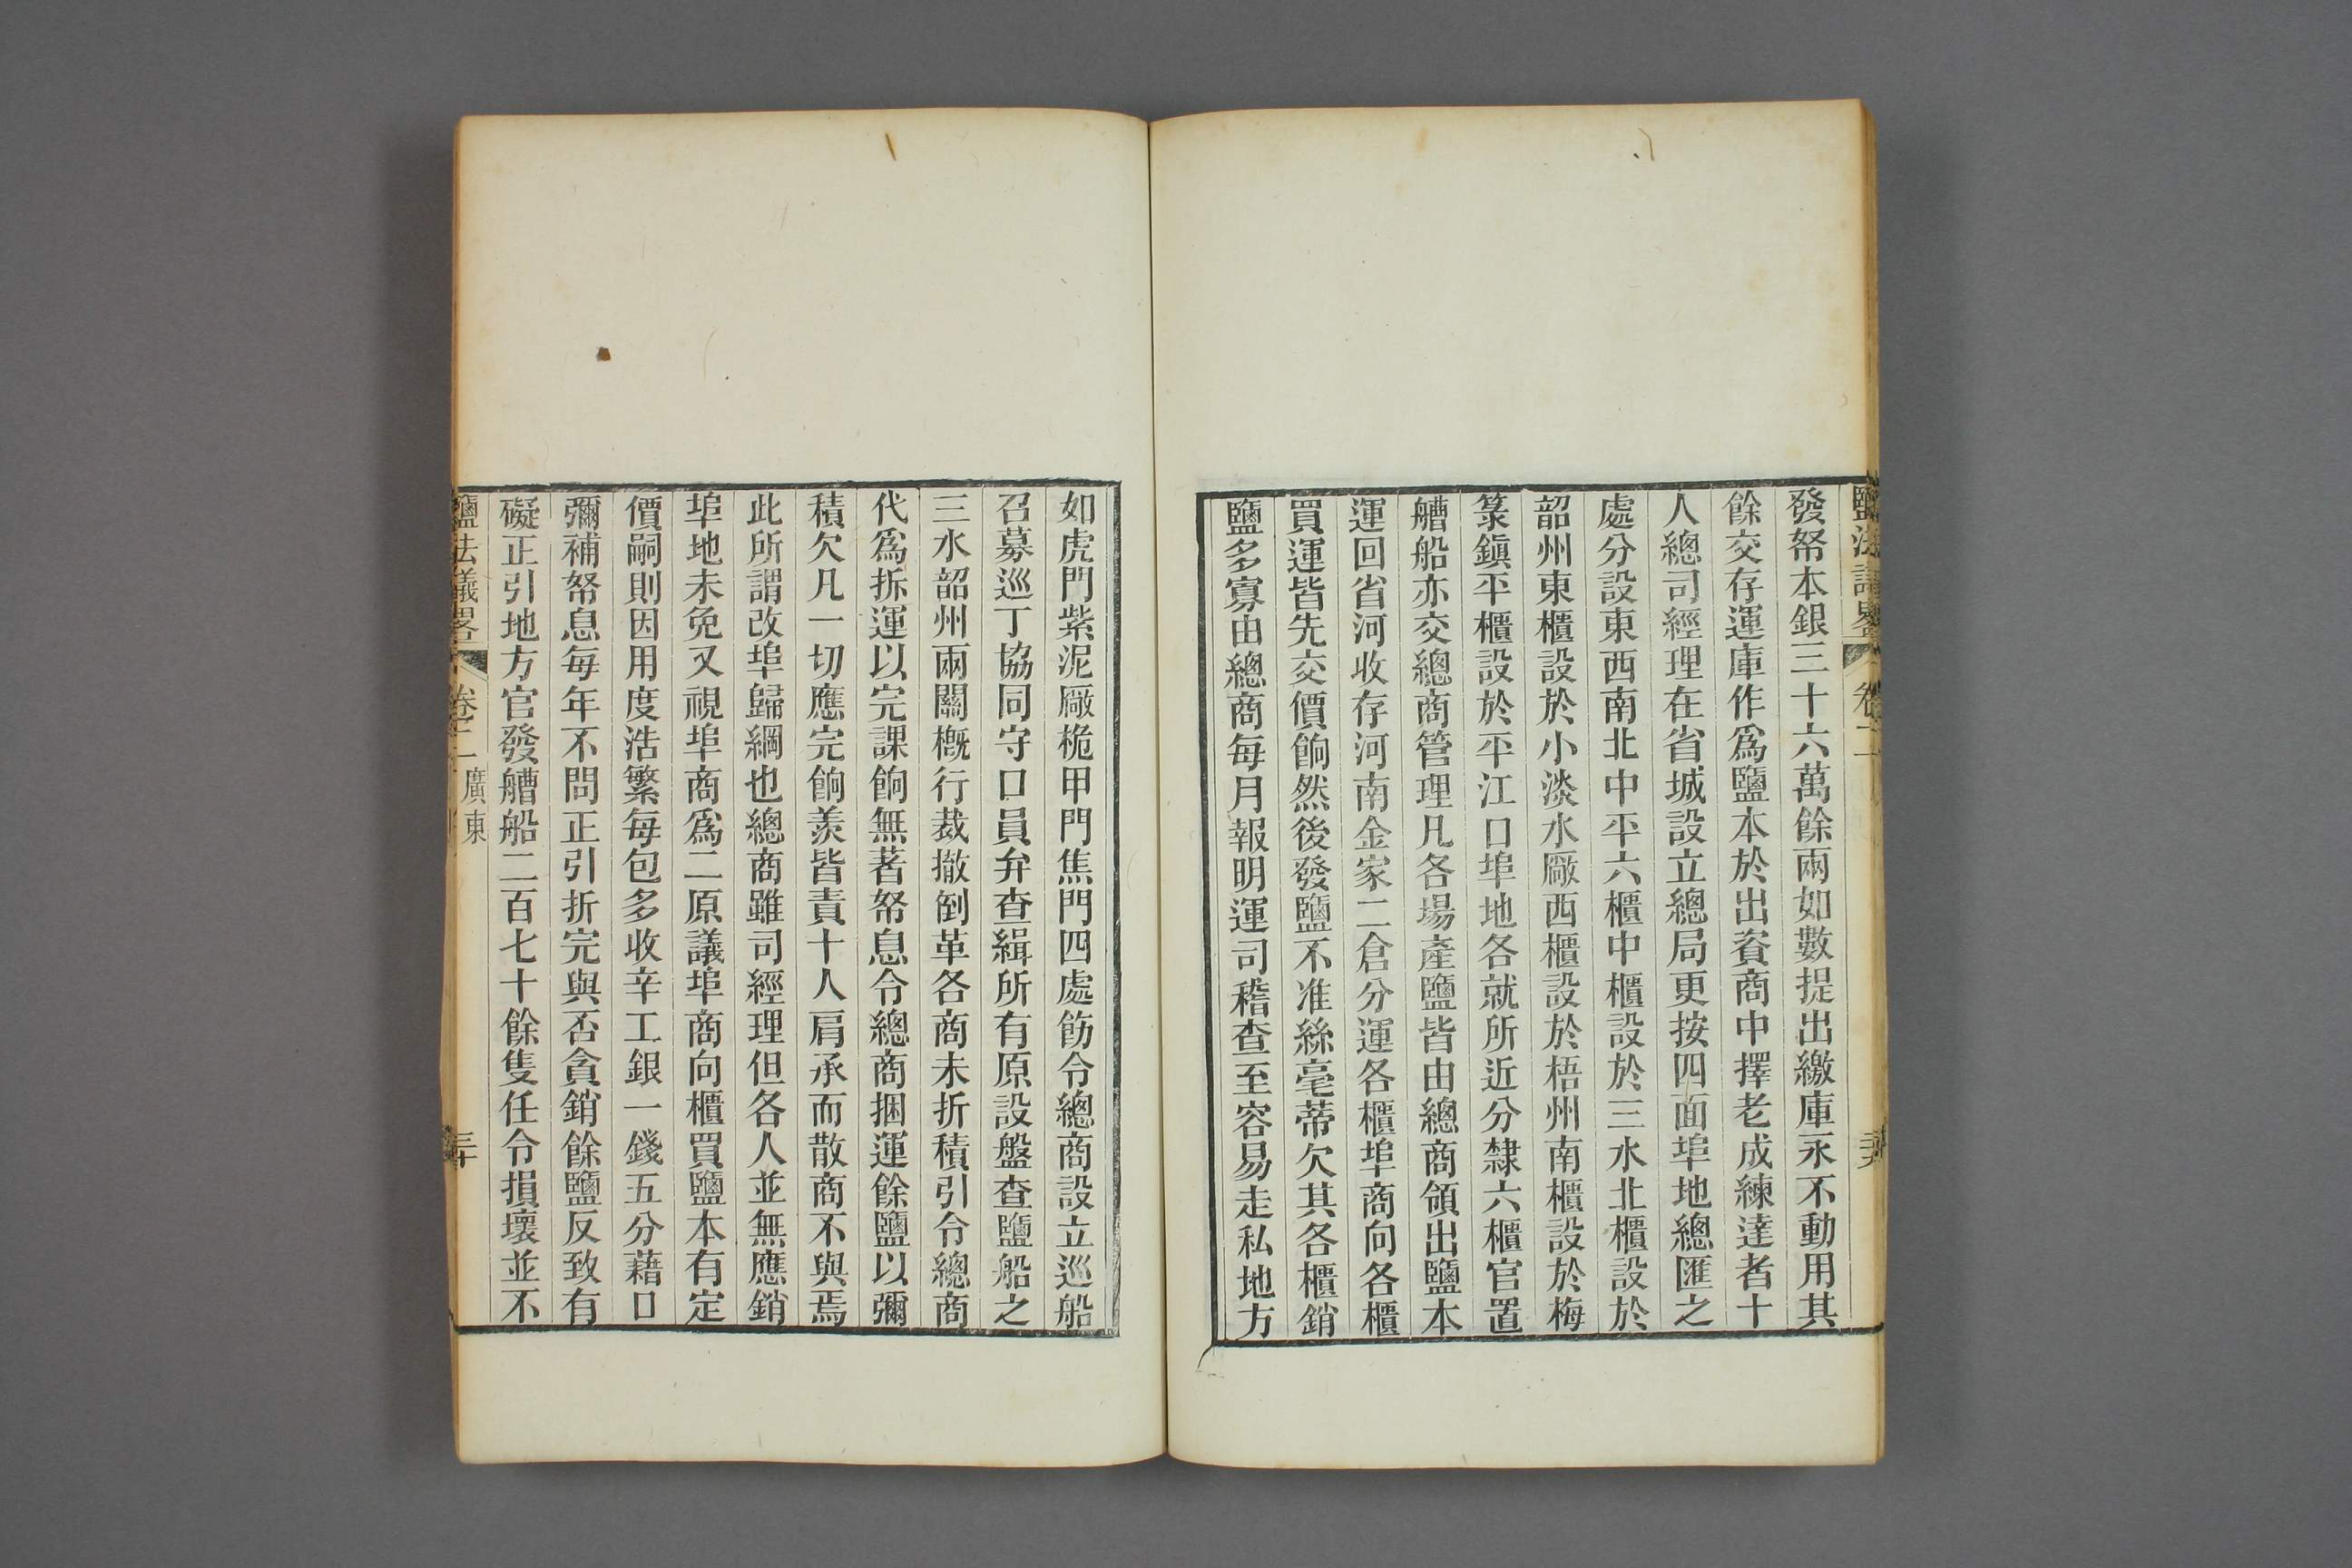 鹽法議畧
卷二
發帑本銀三十六萬餘兩如數提出繳庫永不動用其
餘交存運庫作爲鹽本於出資商中擇老成練達者十
人總司經理在省城設立總局更按四面埠地總匯之
處分設東西南北中平六櫃中櫃設於三水北櫃設於
韶州東櫃設於小淡水廠西櫃設於梧州南櫃設於梅
菉鎮平櫃設於平江口埠地各就所近分隸六櫃官置
艚船亦交總商管理凡各場產鹽皆由總商領出鹽本
運回省河收存河南金家二倉分運各櫃埠商向各櫃
買運皆先交價餉然後發鹽不准絲毫蒂欠其各櫃銷
鹽多寡由總商每月報明運司稽查至容易走私地方
如虎門紫泥廠桅甲門焦門四處飭令總商設立巡船
召募巡丁協同守口員弁查緝所有原設盤查鹽船之
三水韶州兩關槪行裁撤倒革各商未折積引令總商
代爲拆運以完課餉無著帑息令總商捆運餘鹽以彌
積欠凡一切應完餉羨皆責十人肩承而散商不與焉
此所謂改埠歸綱也總商雖司經理但各人並無應銷
埠地未免又視埠商爲二原議埠商向櫃買鹽本有定
價嗣則因用度浩繁每包多收辛工銀一錢五分藉口
彌補帑息每年不問正引折完與否貪銷餘鹽反致有
礙正引地方官發艚船二百七十餘隻任令損壞並不
鹽法議畧
卷二
廣東
三十